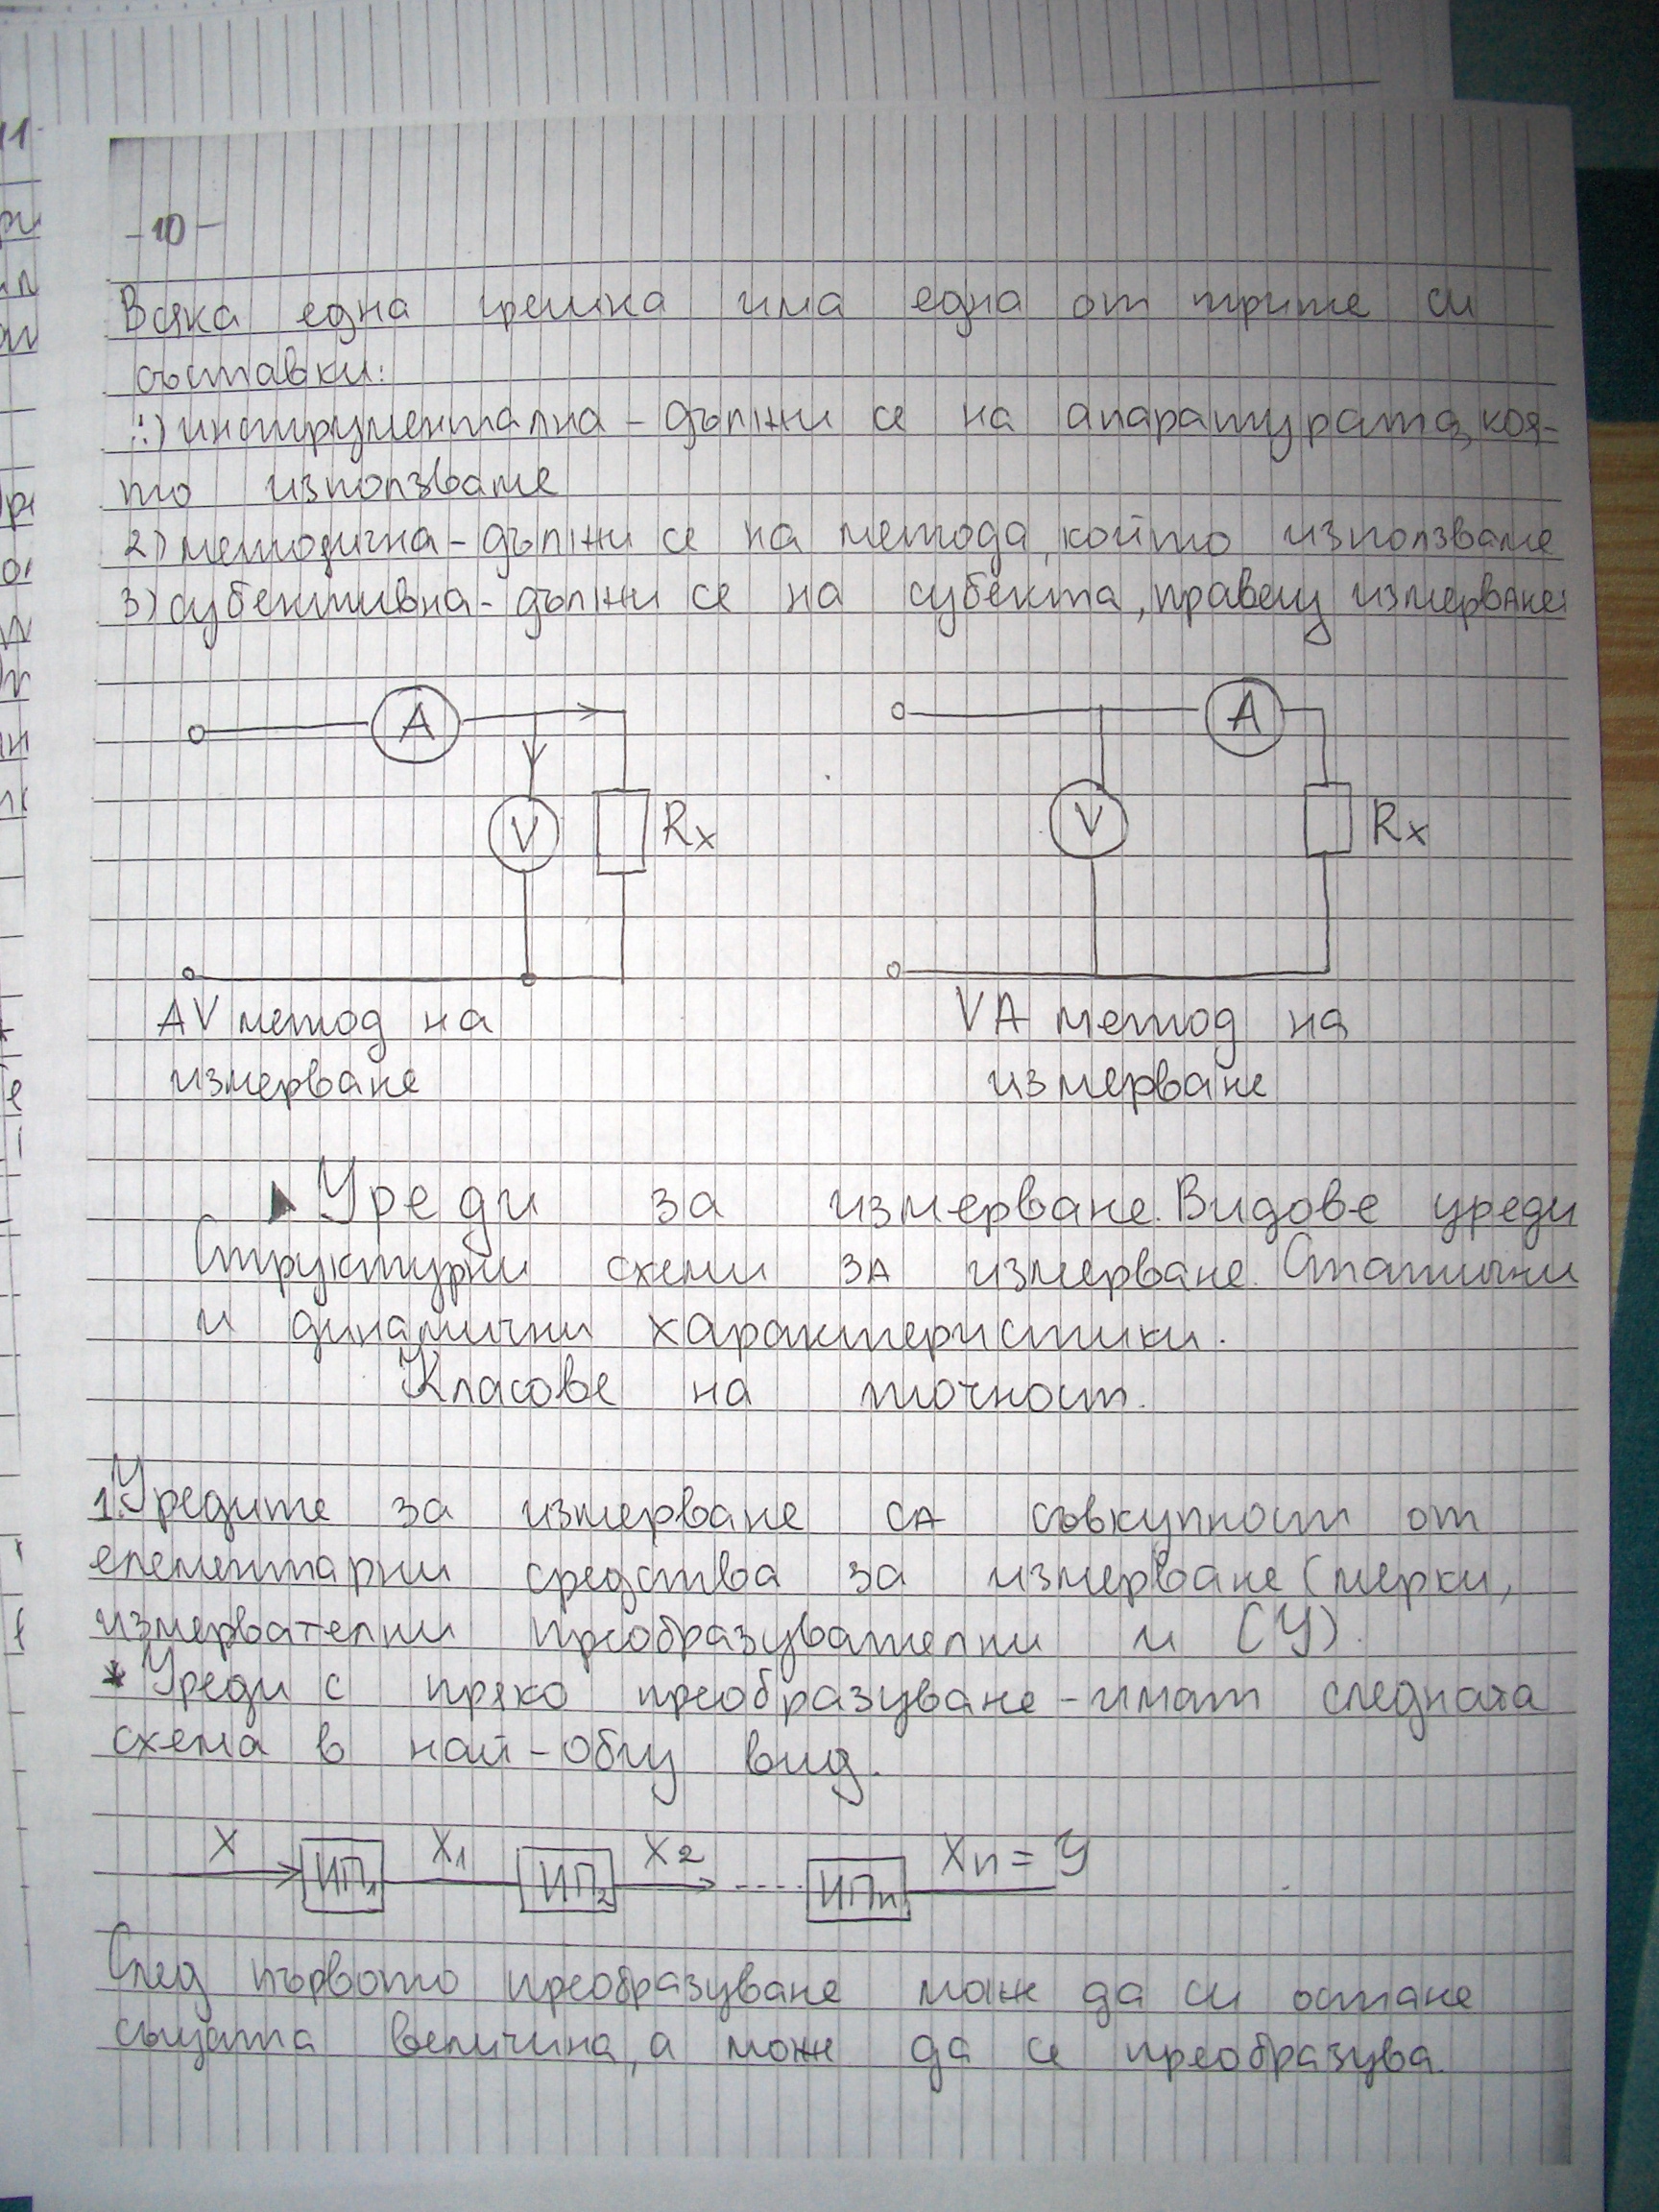 -10-
Всяка една грешка има една от трите си
съставки:
1) инструментална - дължи се на апаратурата, коя-
то използваме
2) методична - дължи се на метода, който използваме
3) субективна - дължи се на субекта, правещ измерване
A
A
V
Rx
V
Rx
AV метод на
измерване
VA метод на
измерване
Уреди за измерване. Видове уреди
Структурни схеми за измерване. Статични
и динамични характеристики.
Класове на точност.
1. Уредите за измерване са съвкупност от
елементарни средства за измерване (мерки,
измервателни преобразувателни и (У).
* Уреди с пряко преобразуване - имат следната
схема в най-общ вид.
X ИП1 X1 ИП2 X2 .... ИПn Xn = У
След първото преобразуване може да си остане
същата величина, а може да се преобразува.